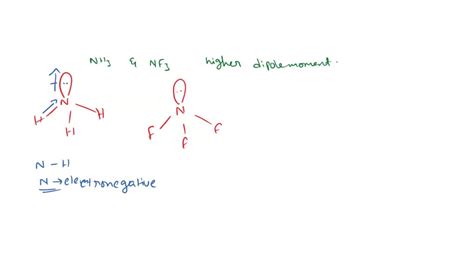 NH3 & NF3 higher dipolemoment.
N
H
H
H
N
F
F
F
N - H
N → electronegative